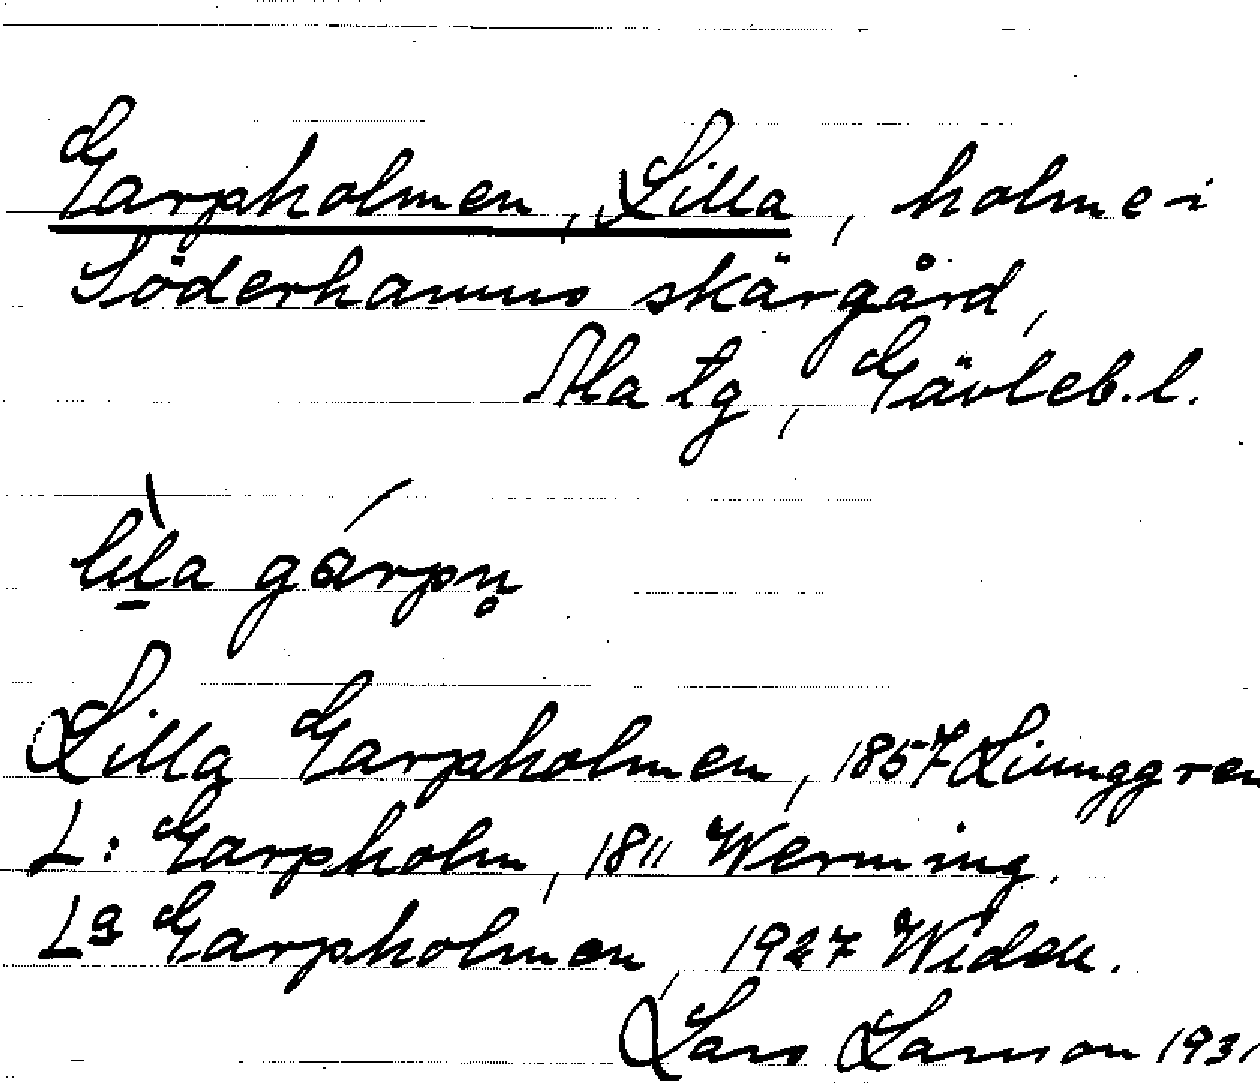 Garpholmen, Lilla, holme i
Söderhamns skärgård,
Ala tg, Gävleb. l.
lịla gárpn̥
Lilla Garpholmen, 1857 Ljunggren
L: Garpholm, 1811 Werming.
La Garpholmen, 1927 Widell.
Lars Larsson 1931